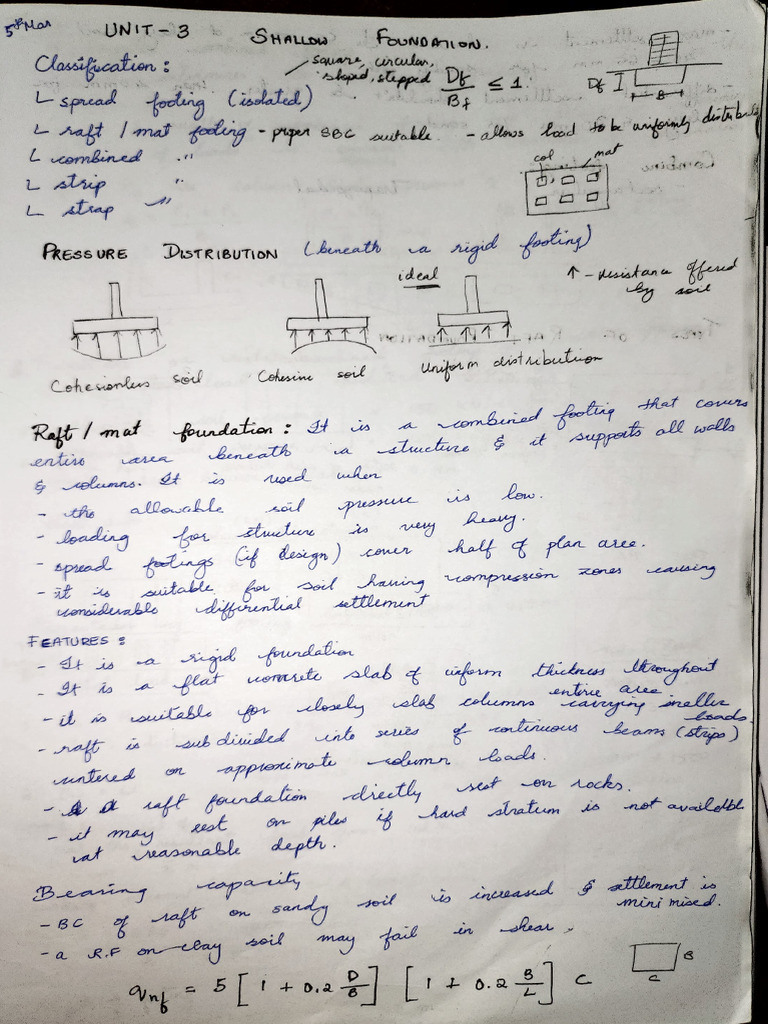 5th Mar
UNIT-3 SHALLOW FOUNDATION.
Classification: square, circular,
sloped, stepped Df/Bf ≤ 1. Df B
spread footing (isolated)
raft / mat footing - proper SBC suitable - allows load to be uniformly distributed
combined "
strip "
strap "
col mat
PRESSURE DISTRIBUTION (beneath a rigid footing)
ideal ↑ - resistance offered
by soil
Cohesionless soil Cohesive soil Uniform distribution
Raft / mat foundation: It is a combined footing that covers
entire area beneath a structure & it supports all walls
& columns. It is used when
- the allowable soil pressure is low.
- loading for structure is very heavy.
- spread footings (if design) cover half of plan area.
- it is suitable for soil having compression zones causing
considerable differential settlement
FEATURES:
- It is a rigid foundation
- It is a flat concrete slab of uniform thickness throughout
entire area.
- it is suitable for closely slab columns carrying smaller
loads.
- raft is subdivided into series of continuous beams (strips)
centered on approximate column loads.
- raft foundation directly rest on rocks.
- it may rest on piles if hard stratum is not available
at reasonable depth.
Bearing capacity
- BC of raft on sandy soil is increased & settlement is
minimised.
- a R.F on clay soil may fail in shear.
B
C
qnf = 5 [1 + 0.2 D/B] [1 + 0.2 B/L] C